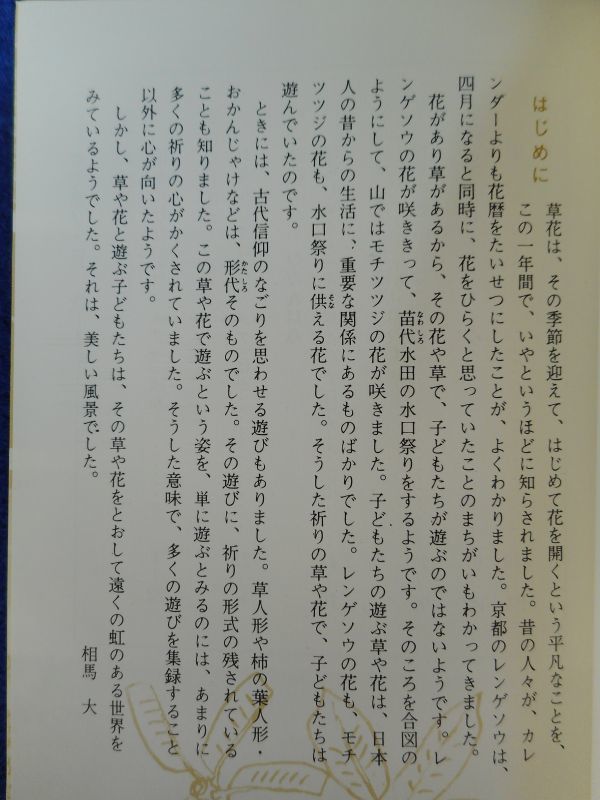 はじめに
草花は、その季節を迎えて、はじめて花を開くという平凡なことを、
この一年間で、いやというほどに知らされました。昔の人々が、カレ
ンダーよりも花暦をたいせつにしたことが、よくわかりました。京都のレンゲソウは、
四月になると同時に、花をひらくと思っていたことのまちがいもわかってきました。
花があり草があるから、その花や草で、子どもたちが遊ぶのではないようです。レ
ンゲソウの花が咲ききって、苗代水田の水口祭りをするようです。そのころを合図の
ようにして、山ではモチツツジの花が咲きました。子どもたちの遊ぶ草や花は、日本
人の昔からの生活に、重要な関係にあるものばかりでした。レンゲソウの花も、モチ
ツツジの花も、水口祭りに供える花でした。そうした祈りの草や花で、子どもたちは
遊んでいたのです。
ときには、古代信仰のなごりを思わせる遊びもありました。草人形や柿の葉人形・
おかんじゃけなどは、形代そのものでした。その遊びに、祈りの形式の残されている
ことも知りました。この草や花で遊ぶという姿を、単に遊ぶとみるのには、あまりに
多くの祈りの心がかくされていました。そうした意味で、多くの遊びを集録すること
以外に心が向いたようです。
しかし、草や花と遊ぶ子どもたちは、その草や花をとおして遠くの虹のある世界を
みているようでした。それは、美しい風景でした。
相馬 大